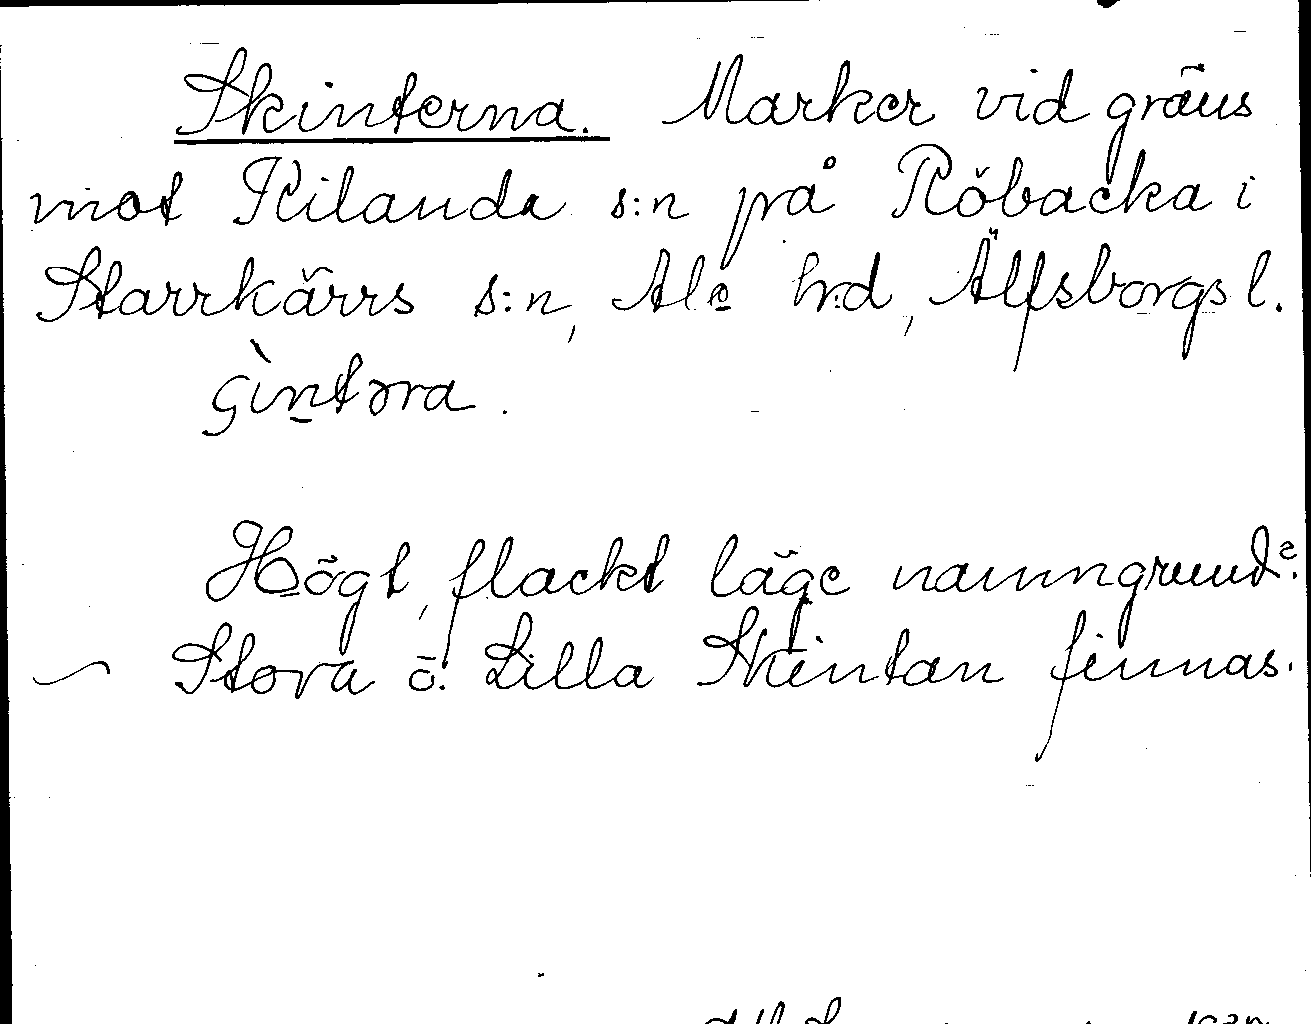 Skinterna. Marker vid gräns
mot Kilanda s:n på Röbacka i
Starrkärrs s:n, Ale h:d, Älfsborgs l.
çìntəra.
Högt, flackt läge namngrund?
— Stora o. Lilla Skintan finnas.